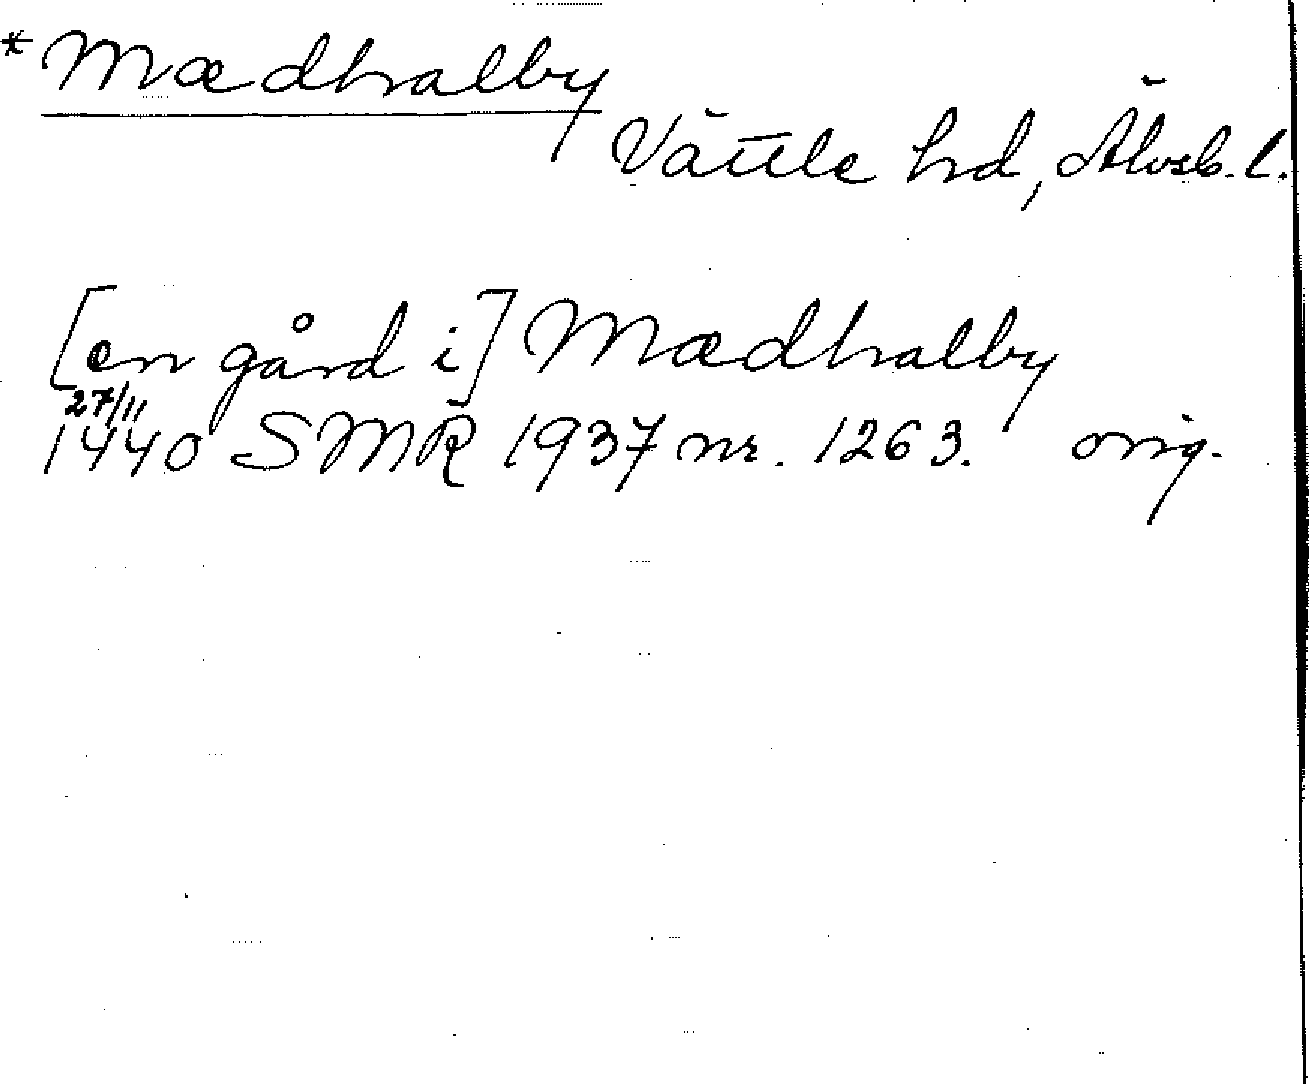 *Mædhalby
Vättle hd, Älvsb. l.
[en gård i] Mædhalby
27/11
1440 SMR 1937 nr. 1263. orig.